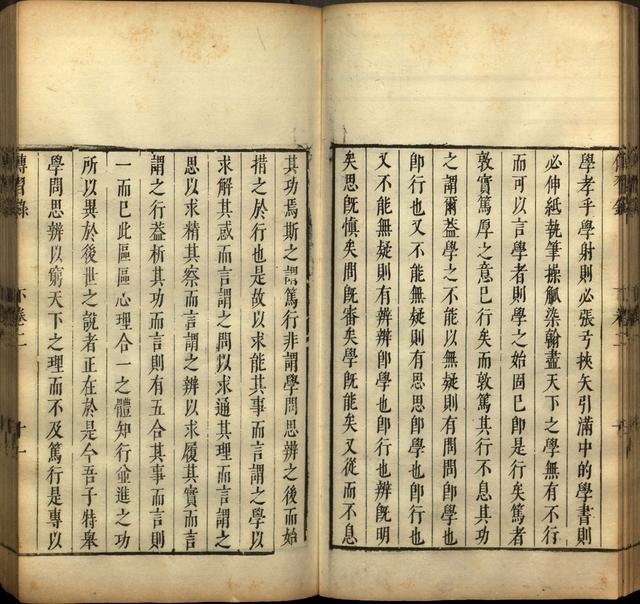 學孝乎學射則必張弓挾矢引滿中的學書則
必伸紙執筆操觚染翰盡天下之學無有不行
而可以言學者則學之始固已即是行矣篤者
敦實篤厚之意已行矣而敦篤其行不息其功
之謂爾葢學之不能以無疑則有問問即學也
即行也又不能無疑則有思思即學也即行也
又不能無疑則有辨辨即學也即行也辨既明
矣思既慎矣問既審矣學既能矣又從而不息
其功焉斯之謂篤行非謂學問思辨之後而始
措之於行也是故以求能其事而言謂之學以
求解其惑而言謂之問以求通其理而言謂之
思以求精其察而言謂之辨以求履其實而言
謂之行葢析其功而言則有五合其事而言則
一而已此區區心理合一之體知行並進之功
所以異於後世之說者正在於是今吾子特舉
學問思辨以窮天下之理而不及篤行是專以
傳習錄 下卷二 十一